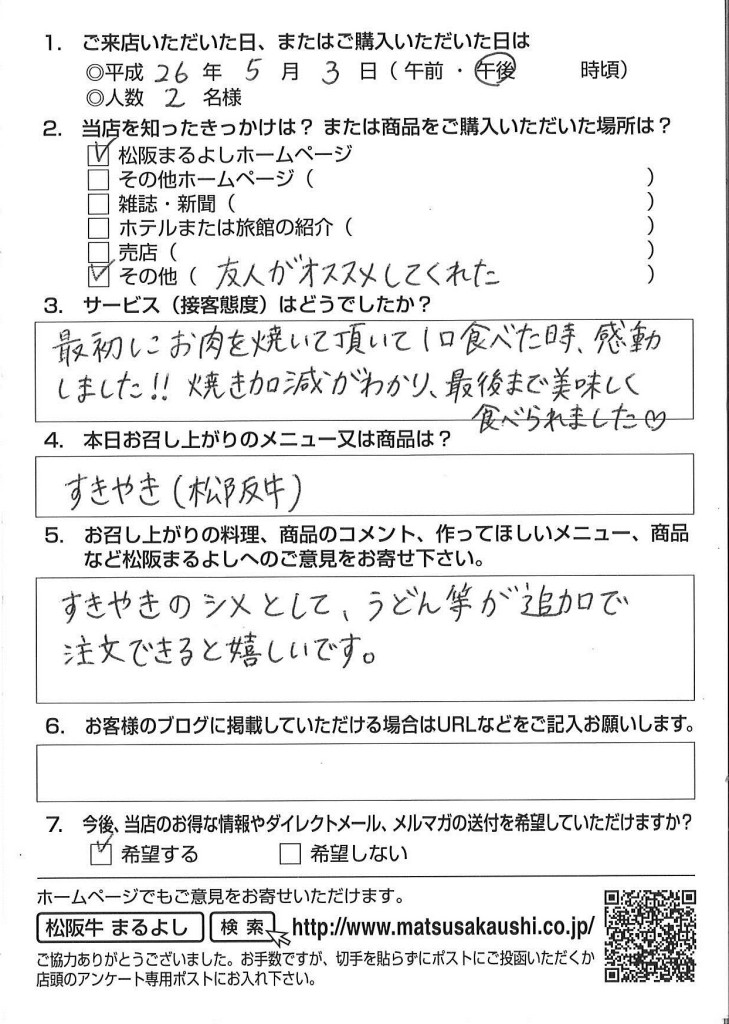 1. ご来店いただいた日、またはご購入いただいた日は
◎平成 26 年 5 月 3 日(午前・午後 時頃)
◎人数 2 名様
2. 当店を知ったきっかけは? または商品をご購入いただいた場所は?
松阪まるよしホームページ
その他ホームページ( )
雑誌・新聞( )
ホテルまたは旅館の紹介( )
売店( )
その他(友人がオススメしてくれた )
3. サービス(接客態度)はどうでしたか?
最初にお肉を焼いて頂いて1口食べた時、感動
しました!! 焼き加減がわかり、最後まで美味しく
食べられました♡
4. 本日お召し上がりのメニュー又は商品は?
すきやき(松阪牛)
5. お召し上がりの料理、商品のコメント、作ってほしいメニュー、商品
など松阪まるよしへのご意見をお寄せ下さい。
すきやきのシメとして、うどん等が追加で
注文できると嬉しいです。
6. お客様のブログに掲載していただける場合はURLなどをご記入お願いします。
7. 今後、当店のお得な情報やダイレクトメール、メルマガの送付を希望していただけますか?
希望する 希望しない
ホームページでもご意見をお寄せいただけます。
松阪牛 まるよし 検索 http://www.matsusakaushi.co.jp/
ご協力ありがとうございました。お手数ですが、切手を貼らずにポストにご投函いただくか
店頭のアンケート専用ポストにお入れ下さい。